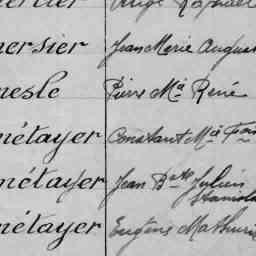 Mersier Jean Marie August
Mesle Pierre Mie René
Métayer Constant Mie Fois
Métayer Jean Bte Julien
Stanislas
Métayer Eugène Mathurin